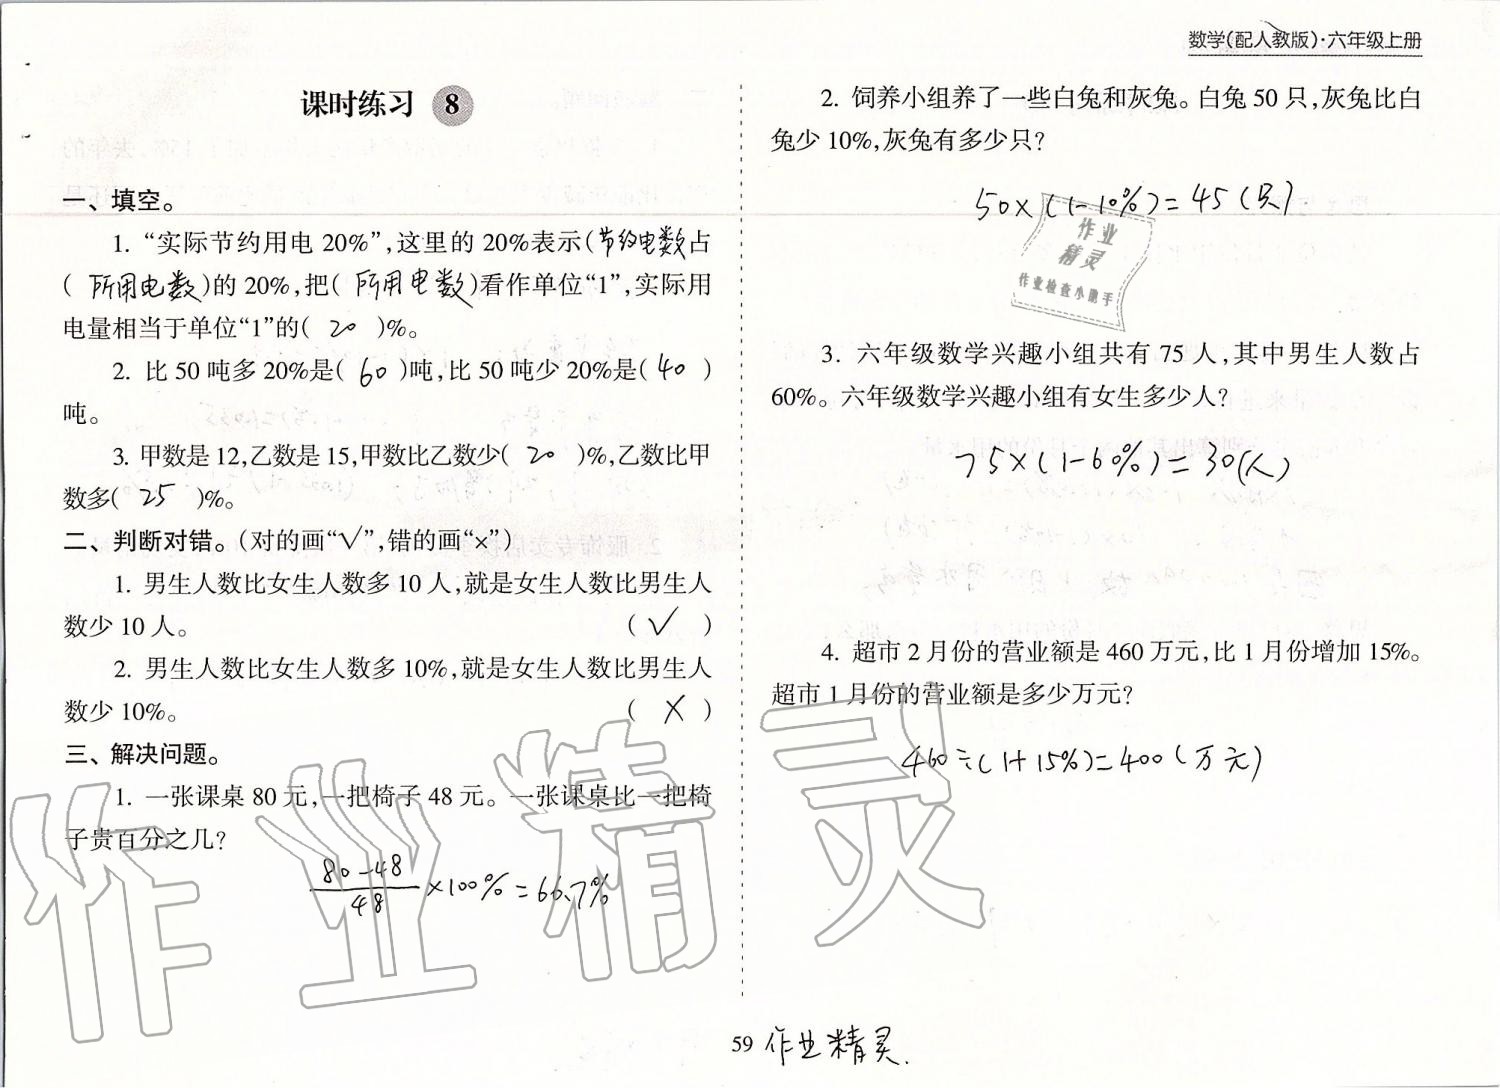 数学(配人教版)·六年级上册
课时练习 8
一、填空。
1. “实际节约用电 20%”,这里的 20%表示(节约电数占
( 所用电数)的 20%,把( 所用电数)看作单位“1”,实际用
电量相当于单位“1”的( 20 )%。
2. 比 50 吨多 20%是( 60 )吨,比 50 吨少 20%是( 40 )
吨。
3. 甲数是 12,乙数是 15,甲数比乙数少( 20 )%,乙数比甲
数多( 25 )%。
二、判断对错。(对的画“√”,错的画“×”)
1. 男生人数比女生人数多 10 人,就是女生人数比男生人
数少 10 人。 ( √ )
2. 男生人数比女生人数多 10%,就是女生人数比男生人
数少 10%。 ( × )
三、解决问题。
1. 一张课桌 80 元,一把椅子 48 元。一张课桌比一把椅
子贵百分之几?
80-48
48
×100%=66.7%
2. 饲养小组养了一些白兔和灰兔。白兔 50 只,灰兔比白
兔少 10%,灰兔有多少只?
50×(1-10%)=45(只)
作业
精灵
作业检查小助手
3. 六年级数学兴趣小组共有 75 人,其中男生人数占
60%。六年级数学兴趣小组有女生多少人?
75×(1-60%)=30(人)
4. 超市 2 月份的营业额是 460 万元,比 1 月份增加 15%。
超市 1 月份的营业额是多少万元?
460÷(1+15%)=400(万元)
作业精灵
59 作业精灵.